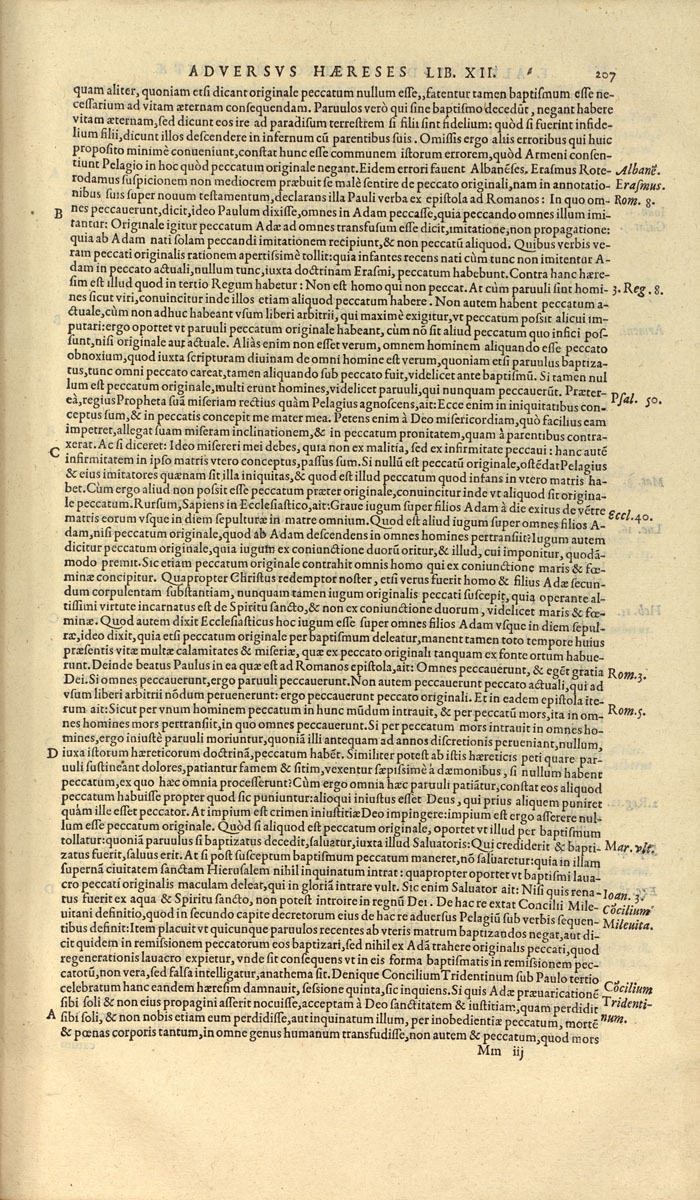 ADVERSVS HÆRESES LIB. XII. 207
quam aliter, quoniam etsi dicant originale peccatum nullum esse, fatentur tamen baptismum esse ne-
cessarium ad vitam æternam consequendam. Paruulos verò qui sine baptismo decedūt, negant habere
vitam æternam, sed dicunt eos ire ad paradisum terrestrem si filii sint fidelium: quòd si fuerint infide-
lium filii, dicunt illos descendere in infernum cū parentibus suis. Omissis ergo aliis erroribus qui huic
proposito minimè conueniunt, constat hunc esse communem istorum errorem, quòd Armeni consen-
tiunt Pelagio in hoc quòd peccatum originale negant. Eidem errori fauent Albanēses. Erasmus Rote- Albanē.
rodamus suspicionem non mediocrem præbuit se malè sentire de peccato originali, nam in annotatio- Erasmus.
nibus suis super nouum testamentum, declarans illa Pauli verba ex epistola ad Romanos: In quo om- Rom. 8.
B nes peccauerunt, dicit, ideo Paulum dixisse, omnes in Adam peccasse, quia peccando omnes illum imi-
tantur: Originale igitur peccatum Adæ ad omnes transfusum esse dicit, imitatione, non propagatione:
quia ab Adam nati solam peccandi imitationem recipiunt, & non peccatū aliquod. Quibus verbis ve-
ram peccati originalis rationem apertissimè tollit: quia infantes recens nati cùm tunc non imitentur A-
dam in peccato actuali, nullum tunc, iuxta doctrinam Erasmi, peccatum habebunt. Contra hanc hære-
sim est illud quod in tertio Regum habetur: Non est homo qui non peccat. At cùm paruuli sint homi- 3. Reg. 8.
nes sicut viri, conuincitur inde illos etiam aliquod peccatum habere. Non autem habent peccatum a-
ctuale, cùm non adhuc habeant vsum liberi arbitrii, qui maximè exigitur, vt peccatum possit alicui im-
putari: ergo oportet vt paruuli peccatum originale habeant, cùm nō sit aliud peccatum quo infici pos-
sunt, nisi originale aut actuale. Aliàs enim non esset verum, omnem hominem aliquando esse peccato
obnoxium, quod iuxta scripturam diuinam de omni homine est verum, quoniam etsi paruulus baptiza-
tus, tunc omni peccato careat, tamen aliquando sub peccato fuit, videlicet ante baptismū. Si tamen nul
lum est peccatum originale, multi erunt homines, videlicet paruuli, qui nunquam peccauerūt. Præter-
eà, regius Propheta suā miseriam rectius quàm Pelagius agnoscens, ait: Ecce enim in iniquitatibus con- Psal. 50.
ceptus sum, & in peccatis concepit me mater mea. Petens enim à Deo misericordiam, quò facilius eam
impetret, allegat suam miseram inclinationem, & in peccatum pronitatem, quam à parentibus contra-
C xerat. Ac si diceret: Ideo misereri mei debes, quia non ex malitia, sed ex infirmitate peccaui: hanc autē
infirmitatem in ipso matris vtero conceptus, passus sum. Si nullū est peccatū originale, ostēdat Pelagius
& eius imitatores quænam sit illa iniquitas, & quod est illud peccatum quod infans in vtero matris ha-
bet. Cùm ergo aliud non possit esse peccatum præter originale, conuincitur inde vt aliquod sit origina-
le peccatum. Rursum, Sapiens in Ecclesiastico, ait: Graue iugum super filios Adam à die exitus de vētre Eccl. 40.
matris eorum vsque in diem sepulturæ in matre omnium. Quod est aliud iugum super omnes filios A-
dam, nisi peccatum originale, quod ab Adam descendens in omnes homines pertransiit? Iugum autem
dicitur peccatum originale, quia iugum ex coniunctione duorū oritur, & illud, cui imponitur, quodā-
modo premit. Sic etiam peccatum originale contrahit omnis homo qui ex coniunctione maris & fœ-
minæ concipitur. Quapropter Christus redemptor noster, etsi verus fuerit homo & filius Adæ secun-
dum corpulentam substantiam, nunquam tamen iugum originalis peccati suscepit, quia operante al-
tissimi virtute incarnatus est de Spiritu sancto, & non ex coniunctione duorum, videlicet maris & fœ-
minæ. Quod autem dixit Ecclesiasticus hoc iugum esse super omnes filios Adam vsque in diem sepul-
ræ, ideo dixit, quia etsi peccatum originale per baptismum deleatur, manent tamen toto tempore huius
præsentis vitæ multæ calamitates & miseriæ, quæ ex peccato originali tanquam ex fonte ortum habue-
runt. Deinde beatus Paulus in ea quæ est ad Romanos epistola, ait: Omnes peccauerunt, & egēt gratia Rom. 3.
Dei. Si omnes peccauerunt, ergo paruuli peccauerunt. Non autem peccauerunt peccato actuali, qui ad
vsum liberi arbitrii nōdum peruenerunt: ergo peccauerunt peccato originali. Et in eadem epistola ite-
rum ait: Sicut per vnum hominem peccatum in hunc mūdum intrauit, & per peccatū mors, ita in om- Rom. 5.
nes homines mors pertransiit, in quo omnes peccauerunt. Si per peccatum mors intrauit in omnes ho-
mines, ergo iniustè paruuli moriuntur, quoniā illi antequam ad annos discretionis perueniant, nullum,
D iuxa istorum hæreticorum doctrinā, peccatum habēt. Similiter potest ab istis hæreticis peti quare par-
uuli sustineant dolores, patiantur famem & sitim, vexentur sæpissimè à dæmonibus, si nullum habent
peccatum, ex quo hæc omnia processerunt? Cùm ergo omnia hæc paruuli patiātur, constat eos aliquod
peccatum habuisse propter quod sic puniuntur: alioqui iniustus esset Deus, qui prius aliquem puniret
quàm ille esset peccator. At impium est crimen iniustitiæ Deo impingere: impium est ergo asserere nul-
lum esse peccatum originale. Quòd si aliquod est peccatum originale, oportet vt illud per baptismum
tollatur: quoniā paruulus si baptizatus decedit, saluatur, iuxta illud Saluatoris: Qui crediderit & bapti- Mar. vlt.
zatus fuerit, saluus erit. At si post susceptum baptismum peccatum maneret, nō saluaretur: quia in illam
supernā ciuitatem sanctam Hierusalem nihil inquinatum intrat: quapropter oportet vt baptismi laua-
cro peccati originalis maculam deleat, qui in gloriā intrare vult. Sic enim Saluator ait: Nisi quis rena- Ioan. 3.
tus fuerit ex aqua & Spiritu sancto, non potest introire in regnū Dei. De hac re extat Concilii Mile- Cōcilium
uitani definitio, quod in secundo capite decretorum eius de hac re aduersus Pelagiū sub verbis sequen- Mileuita.
tibus definit: Item placuit vt quicunque paruulos recentes ab vteris matrum baptizandos negat, aut di-
cit quidem in remissionem peccatorum eos baptizari, sed nihil ex Adā trahere originalis peccati, quod
regenerationis lauacro expietur, vnde sit consequens vt in eis forma baptismatis in remissionem pec-
catorū, non vera, sed falsa intelligatur, anathema sit. Denique Concilium Tridentinum sub Paulo tertio
celebratum hanc eandem hæresim damnauit, sessione quinta, sic inquiens. Si quis Adæ præuaricationē Cōcilium
sibi soli & non eius propagini asserit nocuisse, acceptam à Deo sanctitatem & iustitiam, quam perdidit Tridenti-
A sibi soli, & non nobis etiam eum perdidisse, aut inquinatum illum, per inobedientiæ peccatum, mortē num.
& pœnas corporis tantum, in omne genus humanum transfudisse, non autem & peccatum, quod mors
Mm iij